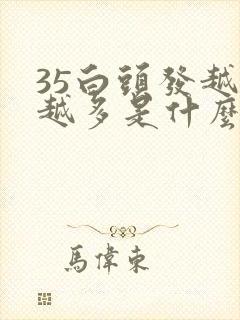 35白頭發越
越多是什麽
馬偉東